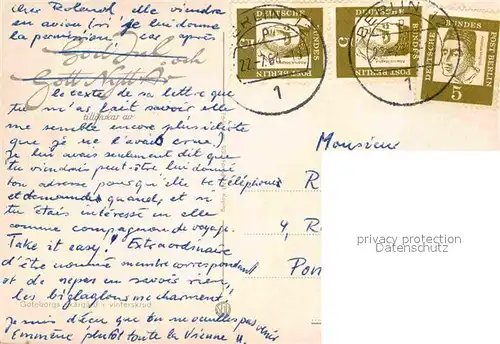 cher Roland, elle viendra
en avion (si je lui donne
la permission) car après
God Jul och
Gott Nytt År
le texte de sa lettre que
tillönskar av
tu m'as fait savoir elle
me semble encore plus idiote
que je ne l'avait crue!)
Je lui avais seulement dit que
tu viendrais peut-être lui donné
ton adresse pour qu'elle te téléphone
et demande quand et si
tu étais intéressé en elle
comme compagnon de voyage.
Take it easy! Extraordinaire
d'être nommé membre correspondant
et de n'en savoir rien,
les me charment,
Göteborgs skärgård i vinterskrud
je suis déçu que tu ne veuilles pas venir
Emmène plutôt toute la Vienne
DEUTSCHE BUNDES POST BERLIN
5
DEUTSCHE BUNDES POST BERLIN
5
DEUTSCHE BUNDES POST BERLIN
5
BERLIN
1
Monsieur
R
4, R
privacy protection
Datenschutz